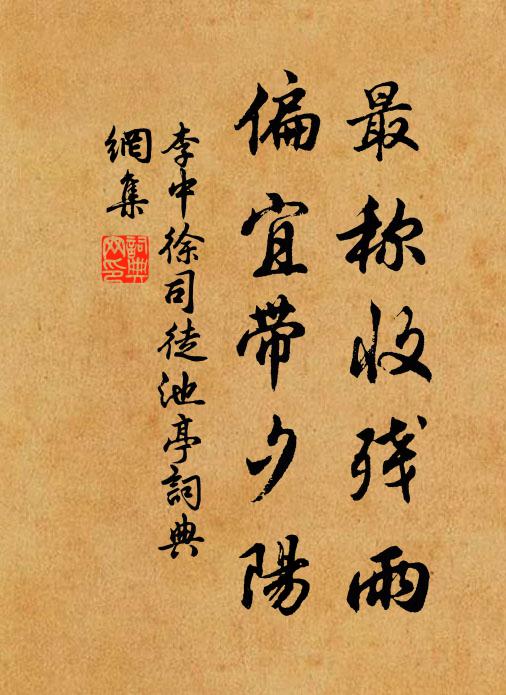 最称收残雨
偏宜带夕陽
李中徐司徒池亭詞典
網集
詞典
网印